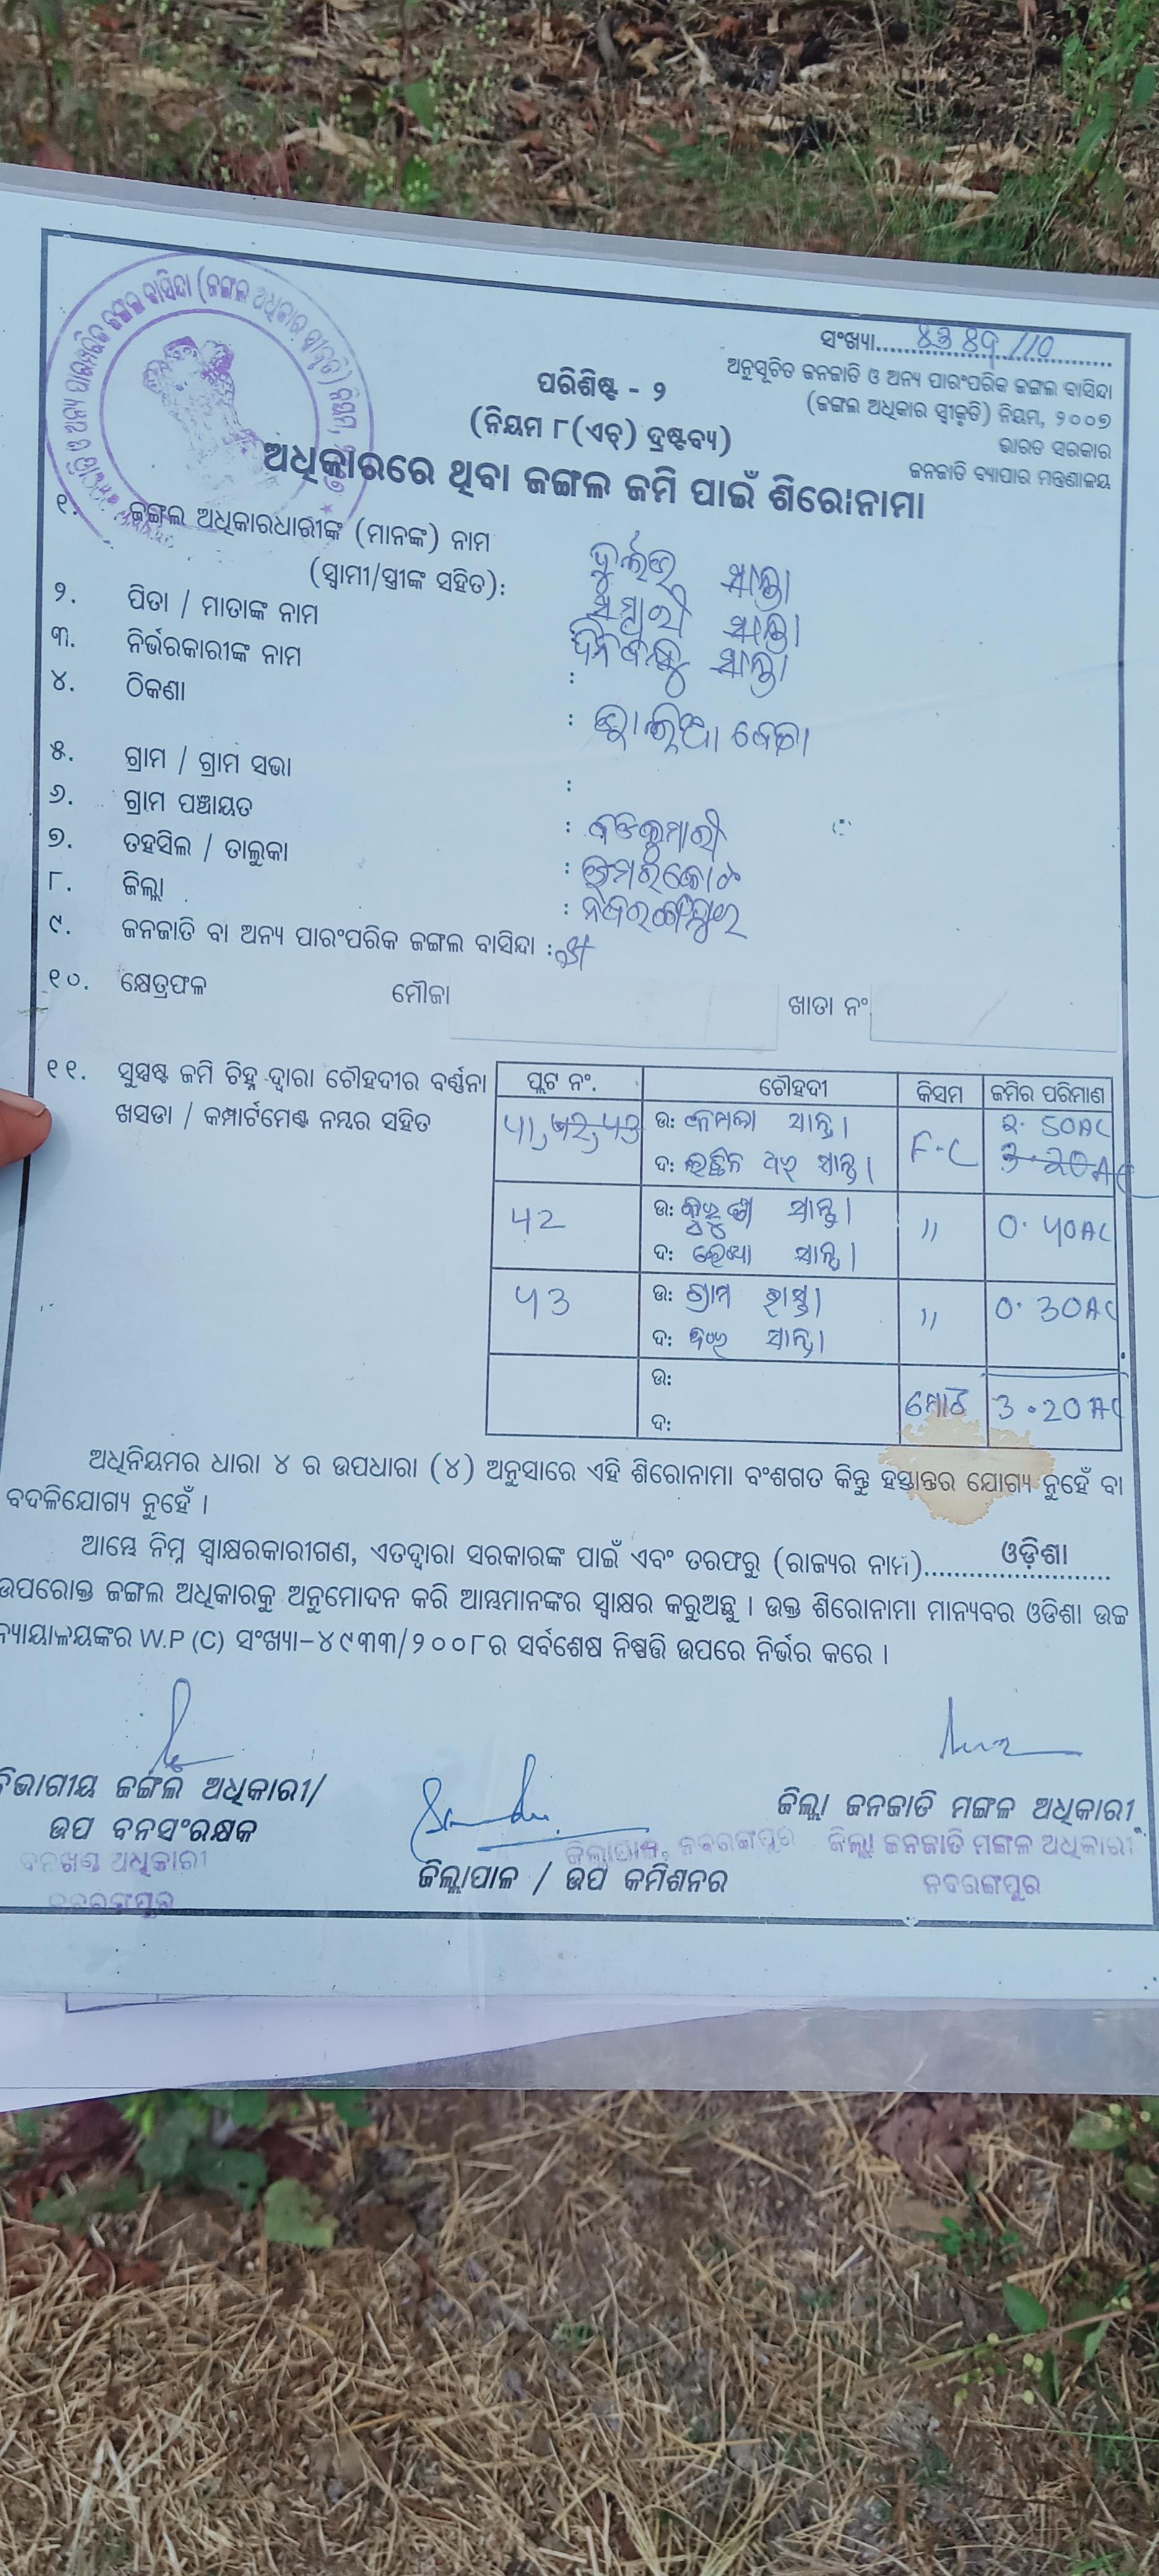 ସଂଖ୍ୟା..............................
ଅନୁସୂଚିତ ଜନଜାତି ଓ ଅନ୍ୟ ପାରଂପରିକ ଜଙ୍ଗଲ ବାସିନ୍ଦା
(ଜଙ୍ଗଲ ଅଧିକାର ସ୍ୱୀକୃତି) ନିୟମ, ୨୦୦୭
ଭାରତ ସରକାର
ଜନଜାତି ବ୍ୟାପାର ମନ୍ତ୍ରଣାଳୟ
ପରିଶିଷ୍ଟ - ୨
(ନିୟମ ୮(ଏଚ୍) ଦ୍ରଷ୍ଟବ୍ୟ)
ଅଧିକାରରେ ଥିବା ଜଙ୍ଗଲ ଜମି ପାଇଁ ଶିରୋନାମା
୧. ଜଙ୍ଗଲ ଅଧିକାରଧାରୀଙ୍କ (ମାନଙ୍କ) ନାମ
(ସ୍ୱାମୀ/ସ୍ତ୍ରୀଙ୍କ ସହିତ): ସାନ୍ତା
୨. ପିତା / ମାତାଙ୍କ ନାମ ସାନ୍ତା
୩. ନିର୍ଭରକାରୀଙ୍କ ନାମ : ଦିନବନ୍ଧୁ ସାନ୍ତା
୪. ଠିକଣା :
୫. ଗ୍ରାମ / ଗ୍ରାମ ସଭା :
୬. ଗ୍ରାମ ପଞ୍ଚାୟତ : ବଡକୁମାରୀ
୭. ତହସିଲ / ତାଲୁକା : ଉମରକୋଟ
୮. ଜିଲ୍ଲା : ନବରଙ୍ଗପୁର
୯. ଜନଜାତି ବା ଅନ୍ୟ ପାରଂପରିକ ଜଙ୍ଗଲ ବାସିନ୍ଦା :
୧୦. କ୍ଷେତ୍ରଫଳ ମୌଜା ଖାତା ନଂ
୧୧. ସୁସ୍ପଷ୍ଟ ଜମି ଚିହ୍ନ ଦ୍ୱାରା ଚୌହଦୀର ବର୍ଣ୍ଣନା
ଖସଡା / କମ୍ପାର୍ଟମେଣ୍ଟ ନମ୍ୱର ସହିତ
ପ୍ଲଟ ନଂ. ଚୌହଦୀ କିସମ ଜମିର ପରିମାଣ
ଉ: କମଲା ସାନ୍ତା 2.50AC
ଦ: ସାନ୍ତା F.C 3.20AC
42 ଉ: ସାନ୍ତା " 0.40AC
ଦ: ସାନ୍ତା
43 ଉ: ଗ୍ରାମ ରାସ୍ତା " 0.30AC
ଦ: ସାନ୍ତା
ଉ:
ଦ: ମୋଟ 3.20AC
ଅଧିନିୟମର ଧାରା ୪ ର ଉପଧାରା (୪) ଅନୁସାରେ ଏହି ଶିରୋନାମା ବଂଶଗତ କିନ୍ତୁ ହସ୍ତାନ୍ତର ଯୋଗ୍ୟ ନୁହେଁ ବା
ବଦଳିଯୋଗ୍ୟ ନୁହେଁ ।
ଆମ୍ଭେ ନିମ୍ନ ସ୍ୱାକ୍ଷରକାରୀଗଣ, ଏତଦ୍ୱାରା ସରକାରଙ୍କ ପାଇଁ ଏବଂ ତରଫରୁ (ରାଜ୍ୟର ନାମ)......ଓଡ଼ିଶା......
ଉପରୋକ୍ତ ଜଙ୍ଗଲ ଅଧିକାରକୁ ଅନୁମୋଦନ କରି ଆମ୍ଭମାନଙ୍କର ସ୍ୱାକ୍ଷର କରୁଅଛୁ । ଉକ୍ତ ଶିରୋନାମା ମାନ୍ୟବର ଓଡିଶା ଉଚ୍ଚ
ନ୍ୟାୟାଳୟଙ୍କର W.P (C) ସଂଖ୍ୟା-୪୯୩୩/୨୦୦୮ର ସର୍ବଶେଷ ନିଷ୍ପତ୍ତି ଉପରେ ନିର୍ଭର କରେ ।
ବିଭାଗୀୟ ଜଙ୍ଗଲ ଅଧିକାରୀ/
ଉପ ବନସଂରକ୍ଷକ
ବନଖଣ୍ଡ ଅଧିକାରୀ
ନବରଙ୍ଗପୁର
ଜିଲ୍ଲାପାଳ, ନବରଙ୍ଗପୁର
ଜିଲ୍ଲାପାଳ / ଉପ କମିଶନର
ଜିଲ୍ଲା ଜନଜାତି ମଙ୍ଗଳ ଅଧିକାରୀ
ଜିଲ୍ଲା ଜନଜାତି ମଙ୍ଗଳ ଅଧିକାରୀ
ନବରଙ୍ଗପୁର